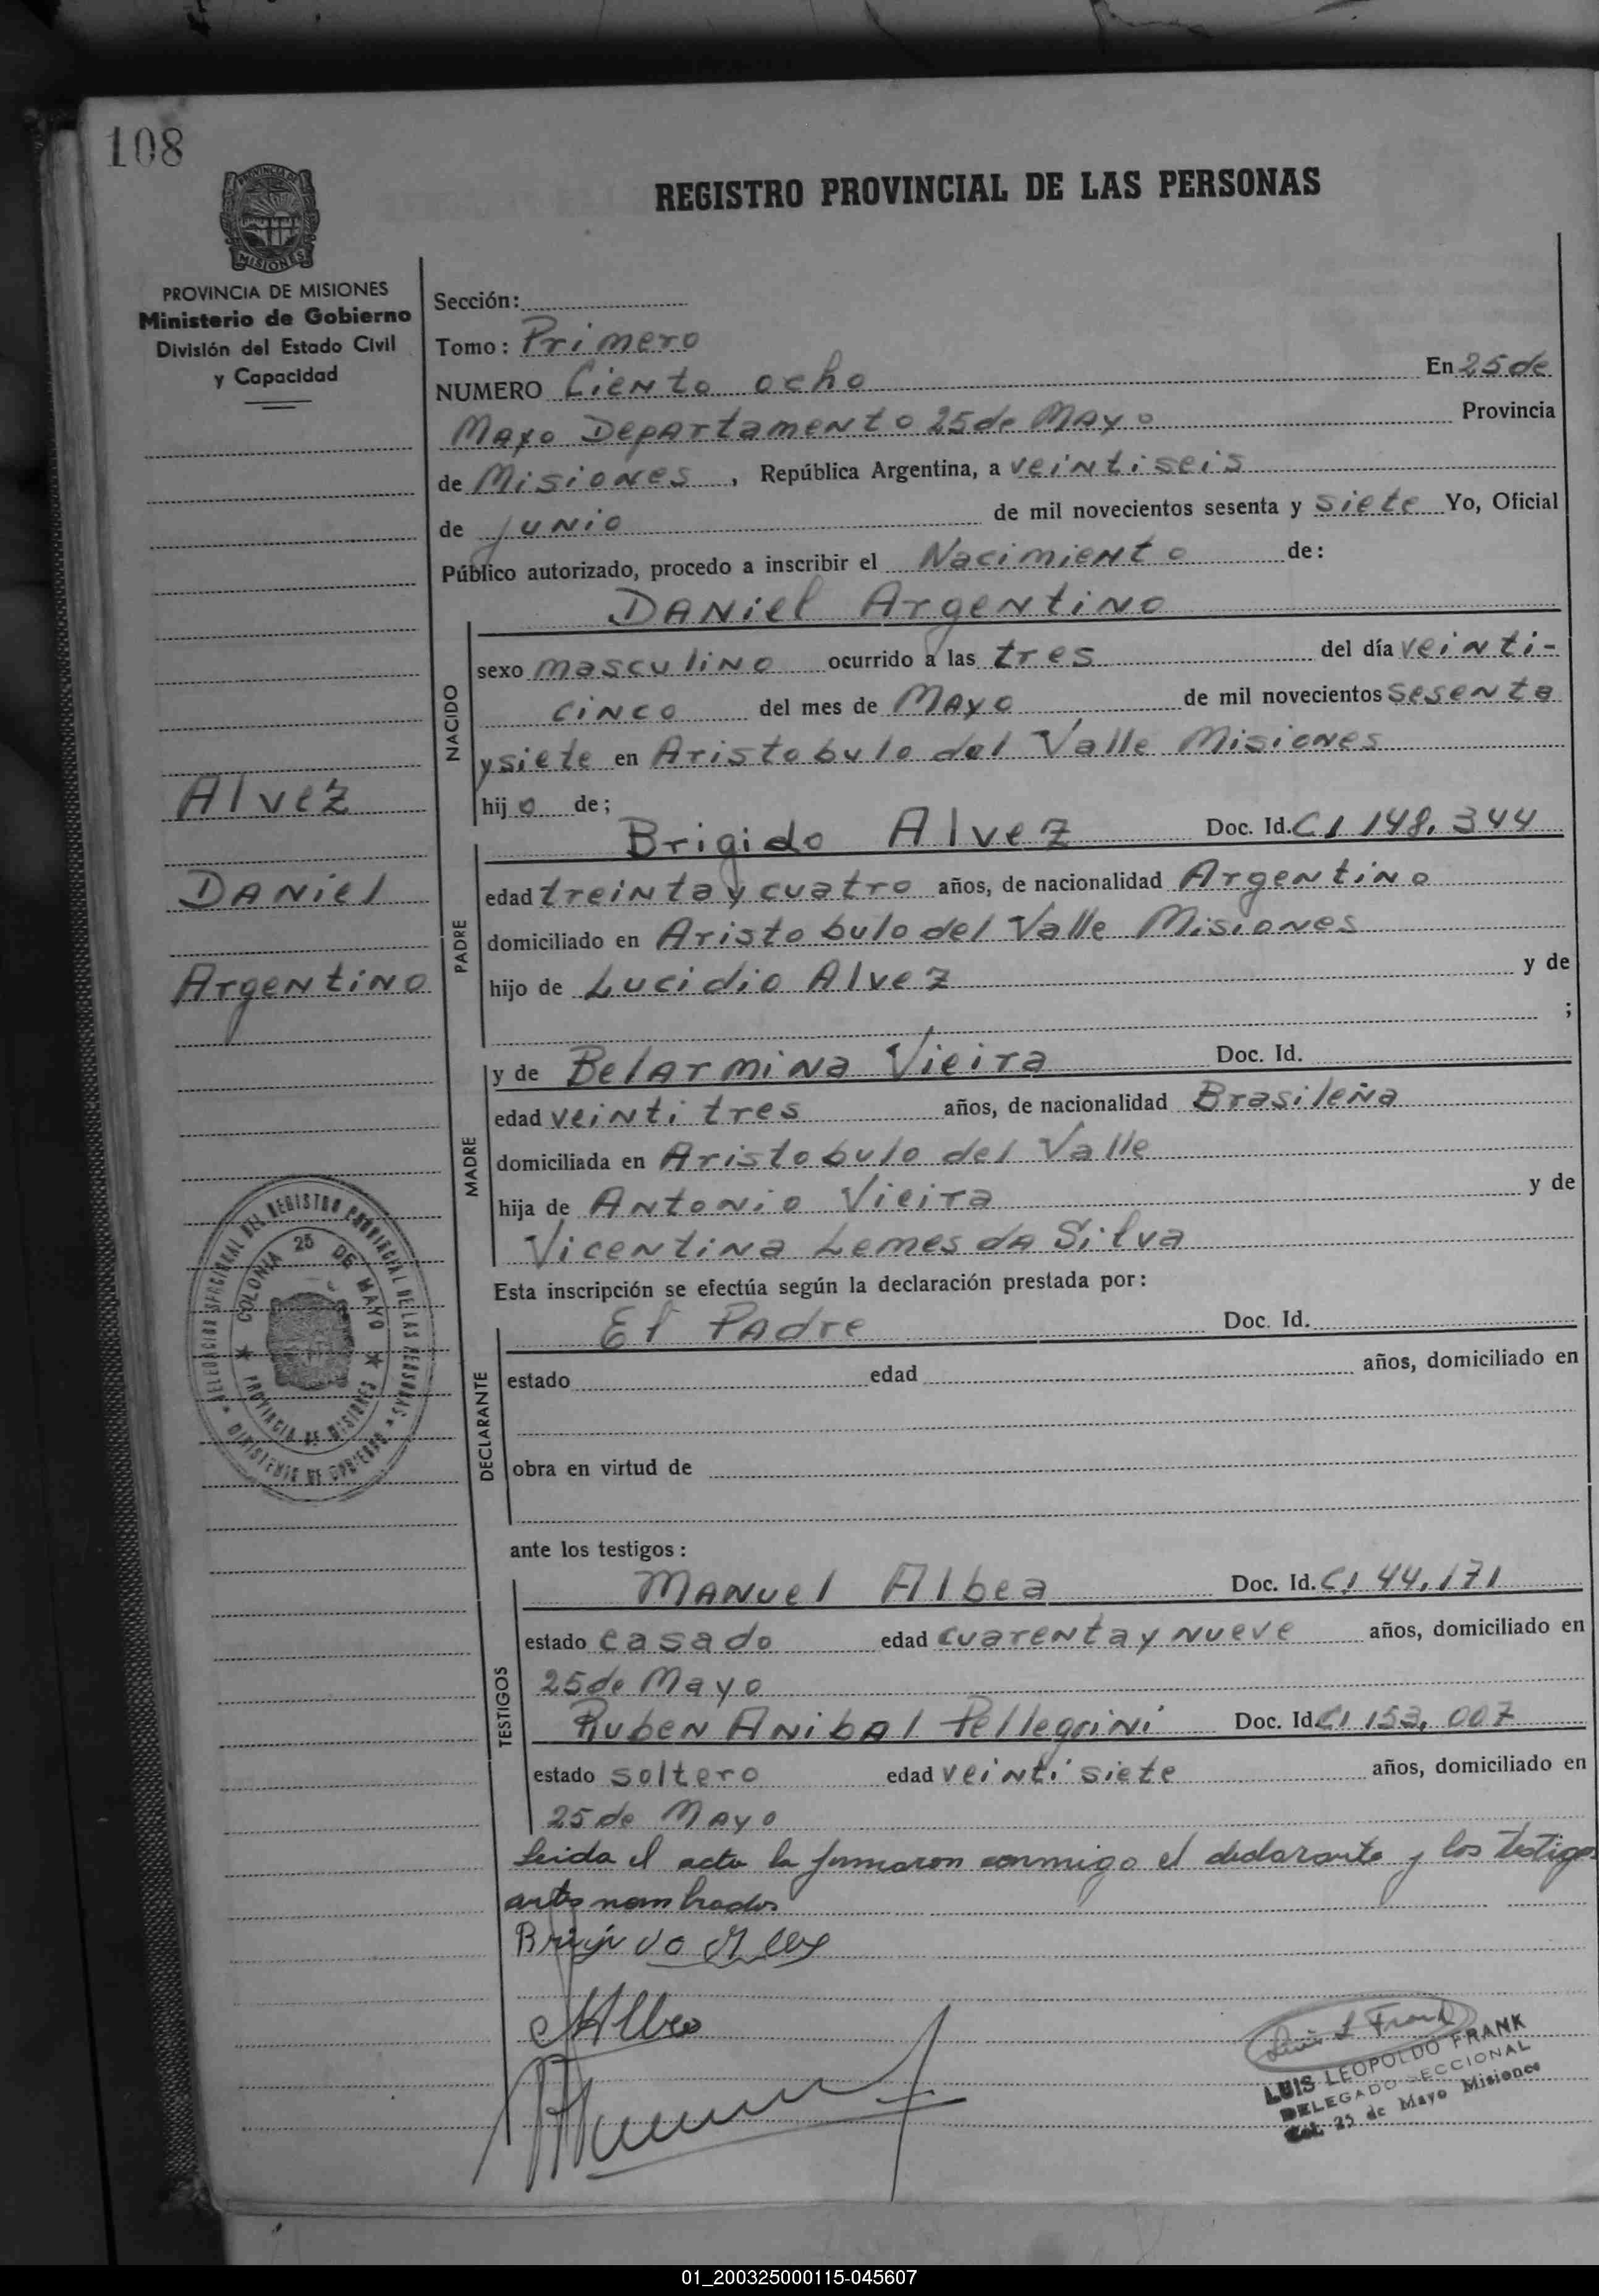 108
PROVINCIA DE
MISIONES
REGISTRO PROVINCIAL DE LAS PERSONAS
PROVINCIA DE MISIONES
Ministerio de Gobierno
División del Estado Civil
y Capacidad
Sección:
Tomo: Primero
NUMERO Ciento ocho En 25 de
Mayo Departamento 25 de Mayo Provincia
de Misiones, República Argentina, a veintiseis
de junio de mil novecientos sesenta y siete Yo, Oficial
Público autorizado, procedo a inscribir el Nacimiento de:
Daniel Argentino
NACIDO
sexo masculino ocurrido a las tres del día veinti-
cinco del mes de Mayo de mil novecientos sesenta
y siete en Aristobulo del Valle Misiones
hijo de;
Alvez
Daniel
Argentino
PADRE
Brigido Alvez Doc. Id. C/ 148.344
edad treinta y cuatro años, de nacionalidad Argentino
domiciliado en Aristobulo del Valle Misiones
hijo de Lucidio Alvez y de
;
MADRE
y de Belarmina Vieira Doc. Id.
edad veintitres años, de nacionalidad Brasileña
domiciliada en Aristobulo del Valle
hija de Antonio Vieira y de
Vicentina Lemes da Silva
DELEGACION SECCIONAL DEL REGISTRO PROVINCIAL DE LAS PERSONAS
COLONIA 25 DE MAYO
PROVINCIA DE MISIONES
MINISTERIO DE GOBIERNO
Esta inscripción se efectúa según la declaración prestada por:
DECLARANTE
El Padre Doc. Id.
estado edad años, domiciliado en
obra en virtud de
ante los testigos:
TESTIGOS
Manuel Albea Doc. Id. C/ 44.171
estado casado edad cuarenta y nueve años, domiciliado en
25 de Mayo
Ruben Anibal Pellegrini Doc. Id. C/ 153.007
estado soltero edad veintisiete años, domiciliado en
25 de Mayo
Leida el acta la firmaron conmigo el declarante y los testigos
antes nombrados
Luis L Frank
LUIS LEOPOLDO FRANK
DELEGADO SECCIONAL
Col. 25 de Mayo Misiones
01_200325000115-045607